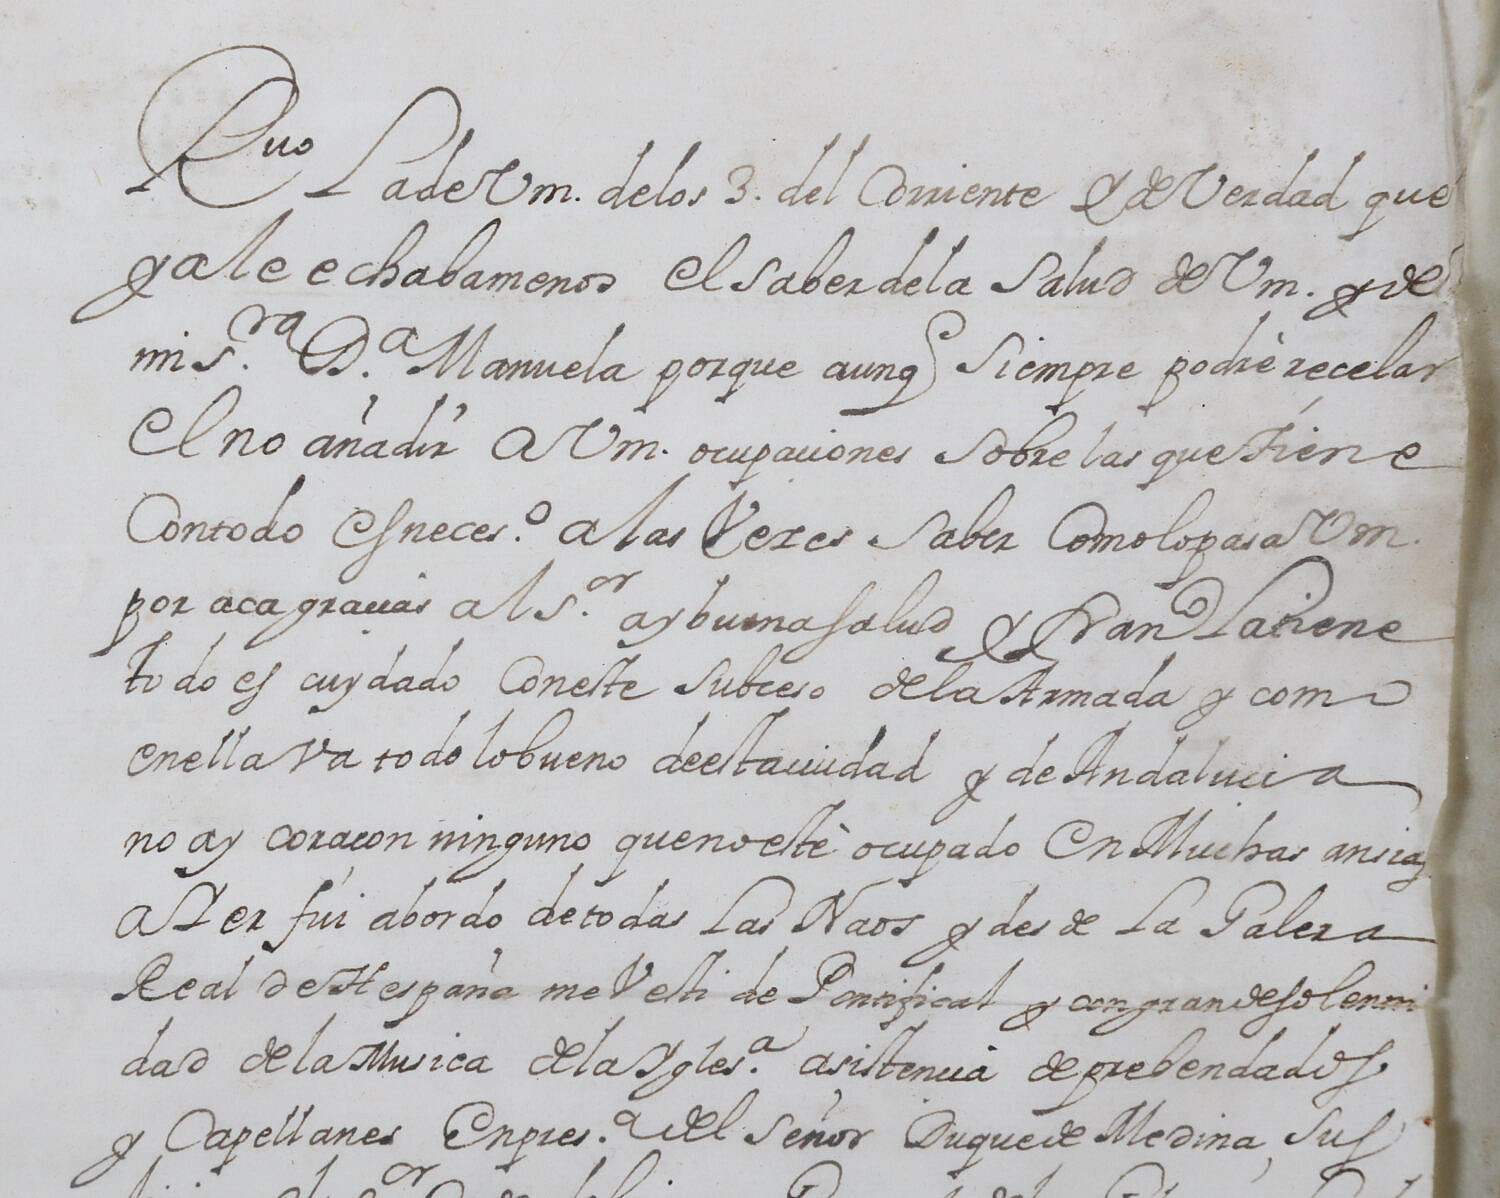 Rvo La de Vm. de los 3. del Corriente y de Verdad que
ya le echaba menos el saber de la Salud de Vm. y de
mi s.ra D.a Manuela porque aunq siempre podrè recelar
El no añadir a Vm. ocupaciones sobre las que tiene
Con todo es neces.o a las Vezes saber Como lo pasa Vm.
por aca gracias al s.or ay buena salud y Fran.co La tiene
todo es cuydado Con este subceso de la Armada y como
en ella va todo lo bueno de esta ciudad y de Andalucia
no ay coracon ninguno que no estè ocupado En Muchas ansias
a Yer fui a bordo de todas Las Naos y desde La Galera
Real de Hespaña me Vesti de Pontifical y con grande solenni
dad de la Musica de la Ygles.a asistencia de prebendados
y Capellanes En pres.a del Señor Duque de Medina, sus